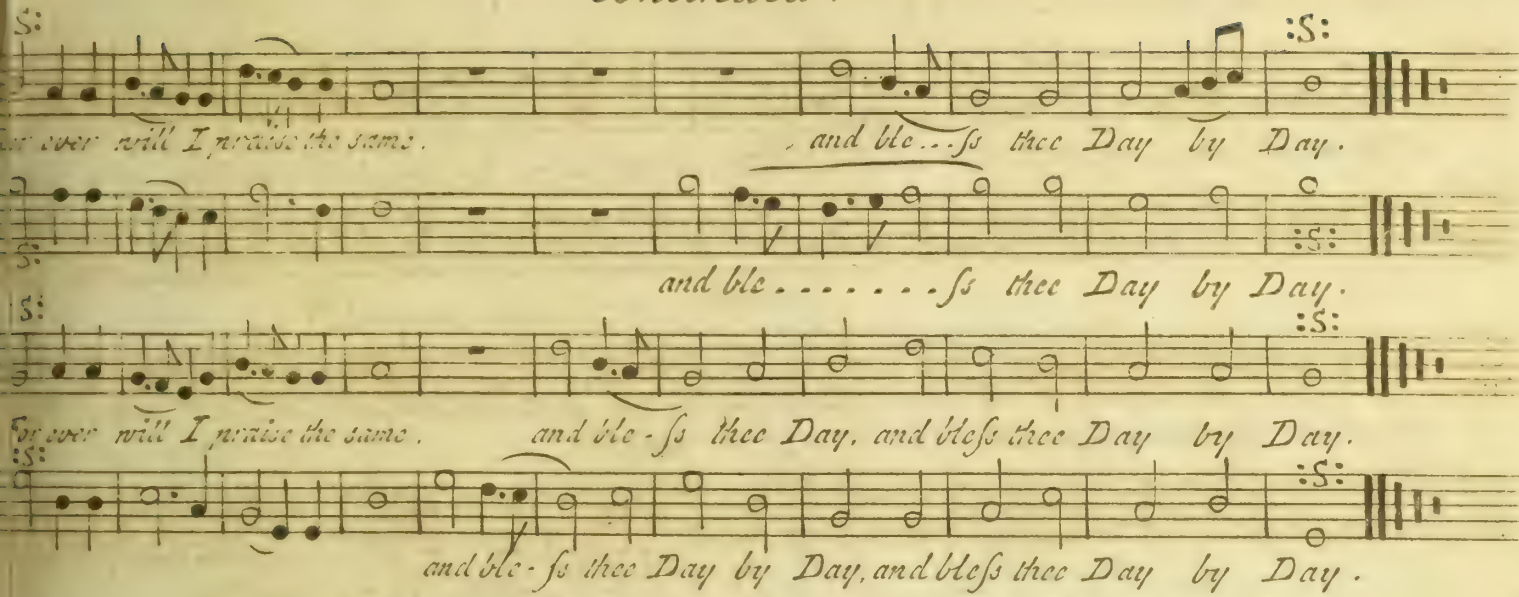 continued.
:S: :S:
For ever will I praise the same. and ble...ſs thee Day by Day.
:S: :S:
and ble.......ſs thee Day by Day.
:S: :S:
For ever will I praise the same. and ble-ſs thee Day, and bleſs thee Day by Day.
:S: :S:
and ble-ſs thee Day by Day, and bleſs thee Day by Day.